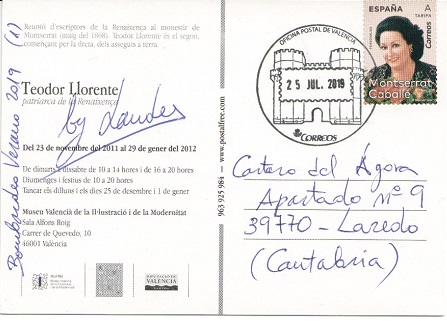 Reunió d'escriptors de la Renaixença al monestir de
Montserrat (maig del 1868). Teodor Llorente és el segon,
començant per la dreta, dels asseguts a terra.
Teodor Llorente
patriarca de la Renaixença
by Landes
Del 23 de novembre del 2011 al 29 de gener del 2012
De dimarts a dissabte de 10 a 14 hores i de 16 a 20 hores
Diumenges i festius de 10 a 20 hores
Tancat els dilluns i els dies 25 de desembre i 1 de gener
Museu Valencià de la Il·lustració i de la Modernitat
Sala Alfons Roig
Carrer de Quevedo, 10
46001 València
DIPUTACIÓ DE
VALENCIA
Verano 2019 (1)
www.postalfree.com
963 925 984
OFICINA POSTAL DE VALENCIA
25 JUL. 2019
CORREOS
ESPAÑA
A
TARIFA
Correos
Montserrat
Caballé
Cartero del Ágora
Apartado nº 9
39770 - Laredo
(Cantabria)